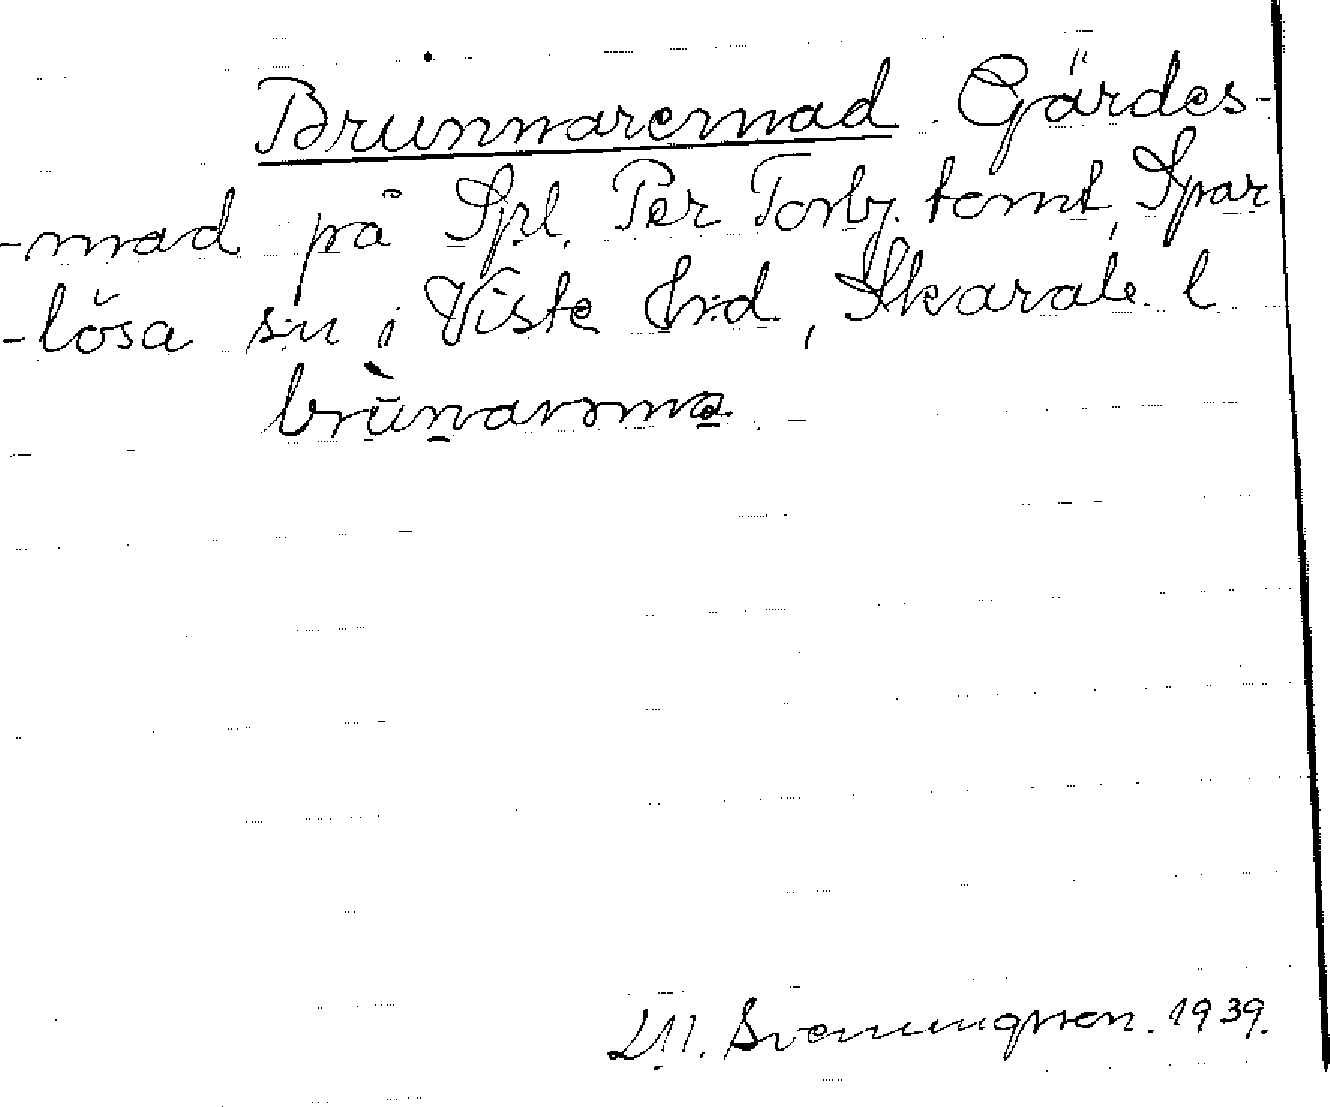 Brunnaremad Gärdes-
-mad på Spl. Per Torbj. tomt, Spar
-lösa sn i Viste hrd, Skarab. l
brùnarma
Svenningsson. 1939.